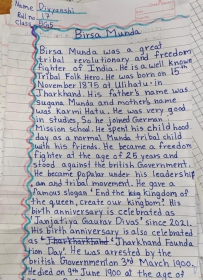 Name Divyanshi
Roll no 17
Class
Birsa Munda
Birsa Munda was a great
tribal revolutionary and freedom
fighter of India. He is a well known
Tribal Folk Hero. He was born on 15th
November 1875 at Ulihatu in
Jharkhand. His father's name was
Sugana Munda and mother's name
was Karmi Hatu. He was very good
in studies. So he joined German
Mission school. He spent his child hood
day as a normal Munda tribal child
with his friends. He became a freedom
fighter at the age of 25 years and
stood against the british Government.
He became popular under his leadership
and tribal movement. He gave a
Famous slogan "End the kingdom of
the queen, create our kingdom". His
birth anniversary is celebrated as
'Janjatiya Gaurav Divas' since 2021.
His birth anniversary is also celebrated
as 'Jharkhand Founda
tion Day'. He was arrested by the
british Government on 3rd March 1900.
He died on 9th June 1900 at the age of